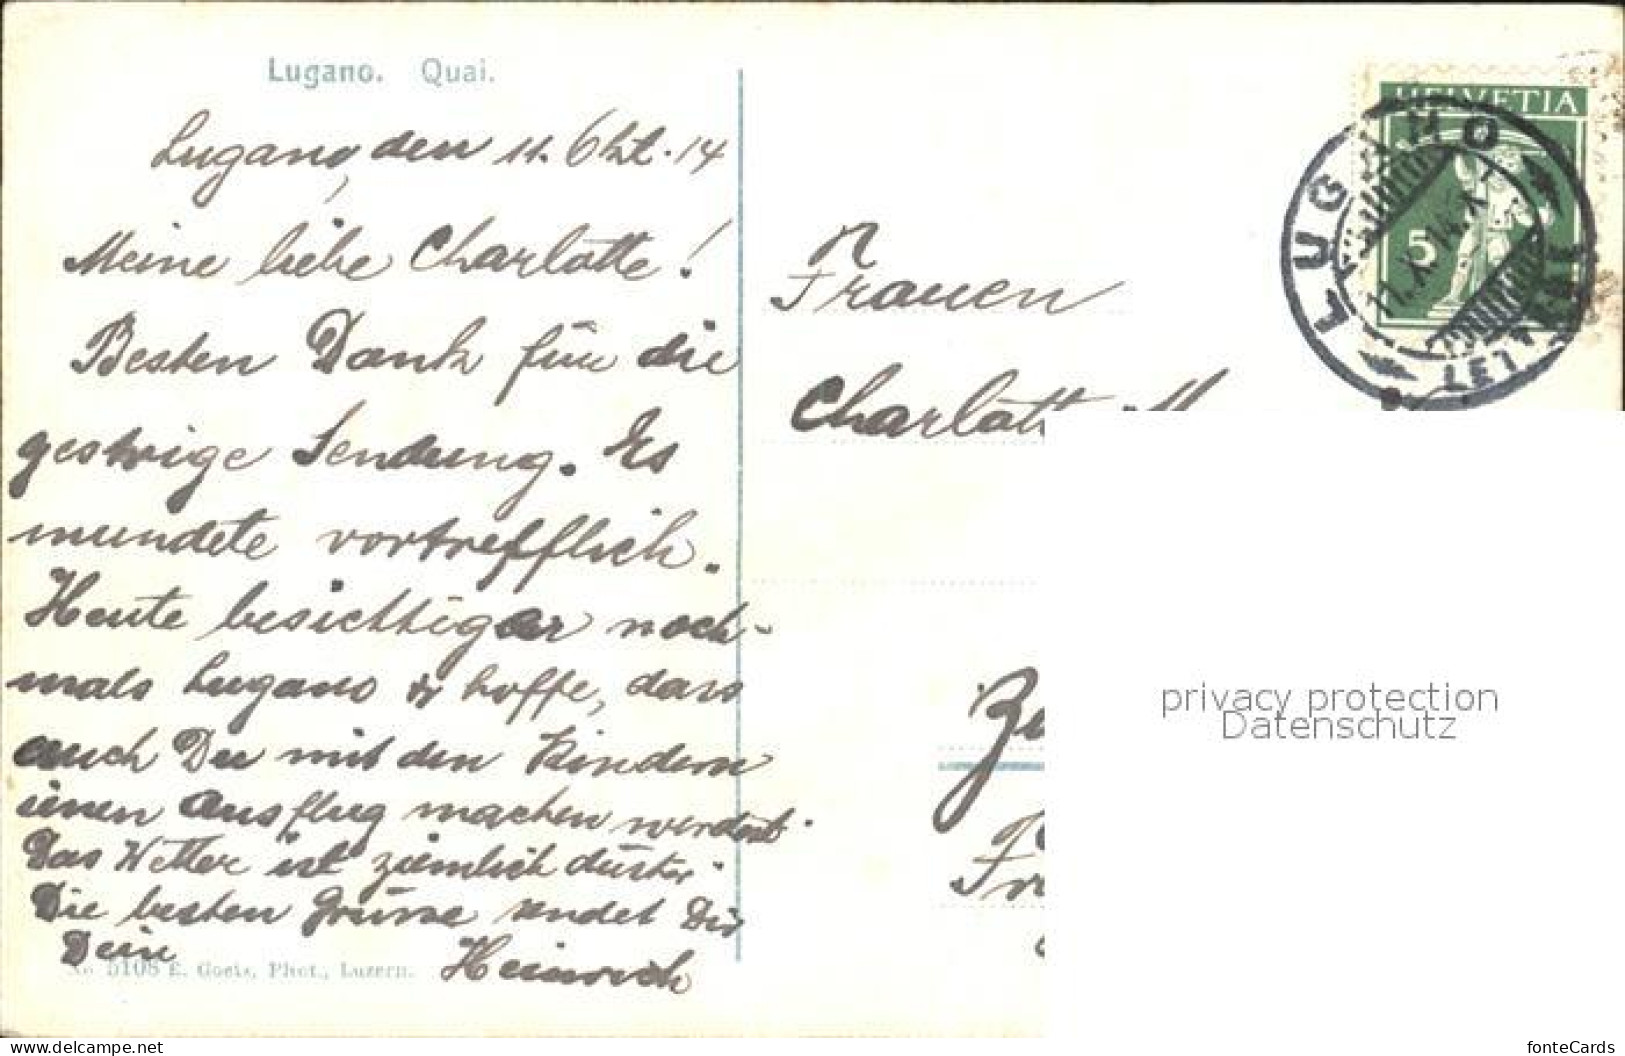 Lugano. Quai.
Lugano, den 11. Okt. 14
Meine liebe Charlotte!
Besten Dank für die
gestrige Sendung. Es
mundete vortrefflich.
Heute besichtig noch-
mals Lugano & hoffe, dass
auch Du mit den Kindern
einen Ausflug machen werdest.
Das Wetter ist ziemlich düster.
Die besten Grüsse sendet Dir
Dein Heinrich
No 5108 E. Goetz, Phot., Luzern.
HELVETIA
5
LUGANO
11.X.14.X
LETTERE
Frauen
Charlott
privacy protection
Datenschutz
https://www.delcampe.net
fonteCards